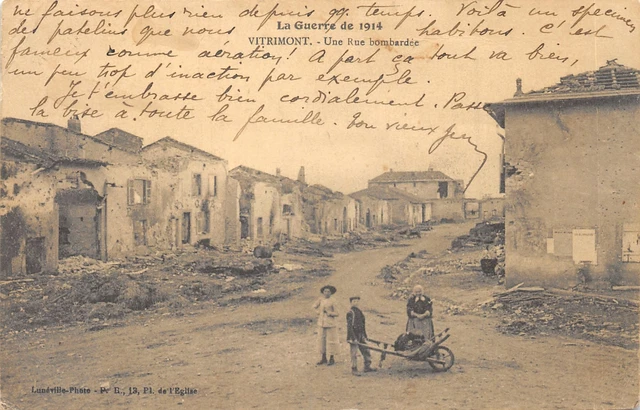 ne faisons plus rien depuis qq temps. Voilà un specimen
La Guerre de 1914
des patelins que nous habitons. C'est
VITRIMONT. - Une Rue bombardée
fameux comme aération! A part ça tout va bien,
un peu trop d'inaction par exemple.
Je t'embrasse bien cordialement. Passe
la bise à toute la famille. Ton vieux
Lunéville-Photo - P. B., 13, Pl. de l'Eglise